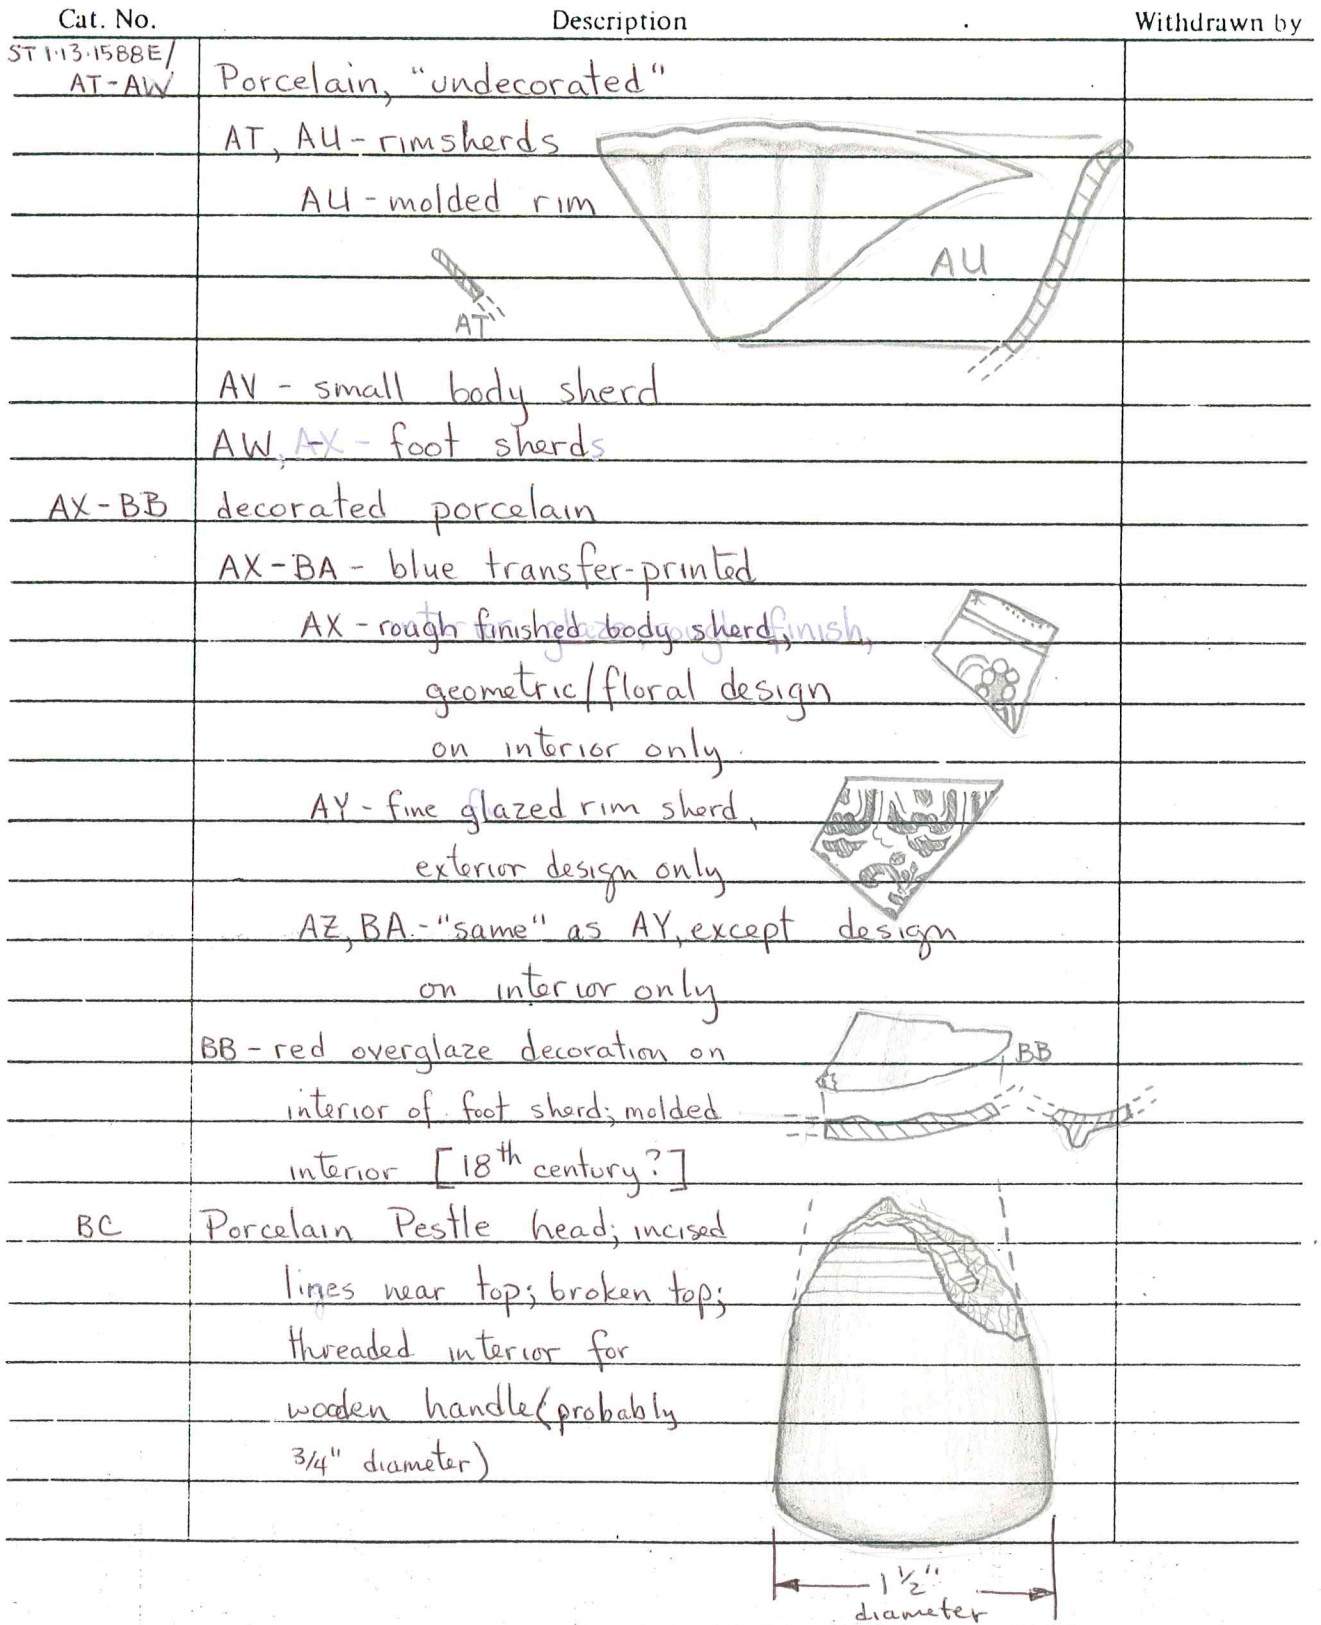 Cat. No. Description Withdrawn by
ST 1·13·1588E/
AT-AW Porcelain, "undecorated"
AT, AU - rimsherds
AU - molded rim
AU
AT
AV - small body sherd
AW, AX - foot sherds
AX-BB decorated porcelain
AX-BA - blue transfer-printed
AX - rough finished body sherd, finish,
geometric/floral design
on interior only.
AY - fine glazed rim sherd,
exterior design only
AZ, BA - "same" as AY, except design
on interior only
BB - red overglaze decoration on
BB
interior of foot sherd; molded
interior [18th century?]
BC Porcelain Pestle head; incised
lines near top; broken top;
threaded interior for
wooden handle (probably
3/4" diameter)
1 1/2"
diameter